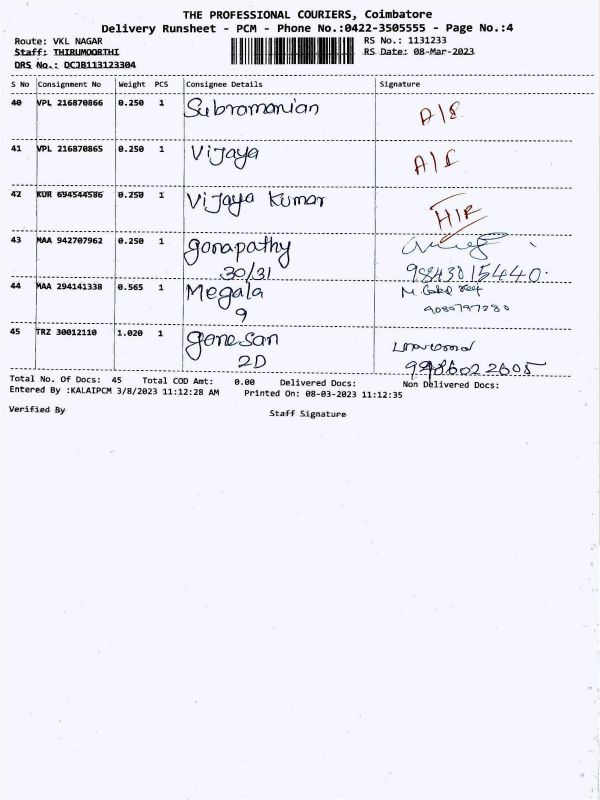 THE PROFESSIONAL COURIERS, Coimbatore
Delivery Runsheet - PCM - Phone No.:0422-3505555 - Page No.:4
Route: VKL NAGAR RS No.: 1131233
Staff: THIRUMOORTHI RS Date: 08-Mar-2023
DRS No.: DCJB113123304
S No Consignment No Weight PCS Consignee Details Signature
40 VPL 216870866 0.250 1 Subramanian
41 VPL 216870865 0.250 1 Vijaya
42 KUR 694544586 0.250 1 Vijaya Kumar
43 MAA 942707962 0.250 1 gonapathy
30/31 9843015440
44 MAA 294141338 0.565 1 Megala
9
45 TRZ 30012110 1.020 1 gonesan
2D
Total No. Of Docs: 45 Total COD Amt: 0.00 Delivered Docs: Non Delivered Docs:
Entered By :KALAIPCM 3/8/2023 11:12:28 AM Printed On: 08-03-2023 11:12:35
Verified By Staff Signature